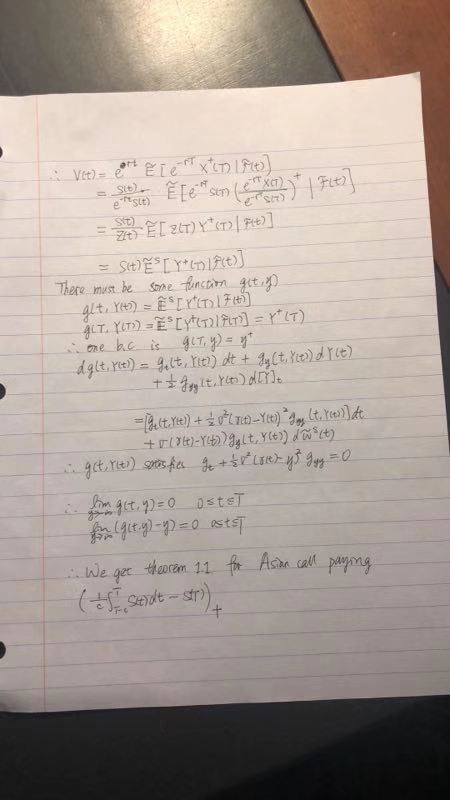 ∴ V(t) = e^{rt} Ẽ[e^{-rT} X⁺(T) | F(t)]
= S(t)/(e^{-rt}S(t)) Ẽ[e^{-rT} S(T) (e^{-rT}X(T)/(e^{-rT}S(T)))⁺ | F(t)]
= S(t)/Z(t) Ẽ[Z(T) Y⁺(T) | F(t)]
= S(t) Ẽ^S[Y⁺(T) | F(t)]
There must be some function g(t,y)
g(t, Y(t)) = Ẽ^S[Y⁺(T) | F(t)]
g(T, Y(T)) = Ẽ^S[Y⁺(T) | F(T)] = Y⁺(T)
∴ one b.c is g(T,y) = y⁺
dg(t,Y(t)) = g_t(t,Y(t)) dt + g_y(t,Y(t)) dY(t)
+ ½ g_yy(t,Y(t)) d[Y]_t
= [g_t(t,Y(t)) + ½σ²(γ(t)-Y(t))² g_yy(t,Y(t))] dt
+ σ(γ(t)-Y(t)) g_y(t,Y(t)) dW̃^S(t)
∴ g(t,Y(t)) satisfies g_t + ½σ²(γ(t)-y)² g_yy = 0
∴ lim g(t,y) = 0 0≤t≤T
lim (g(t,y)-y) = 0 0≤t≤T
∴ We get theorem 1.1 for Asian call paying
(1/c ∫_{T-c}^{T} S(t)dt - S(T))₊